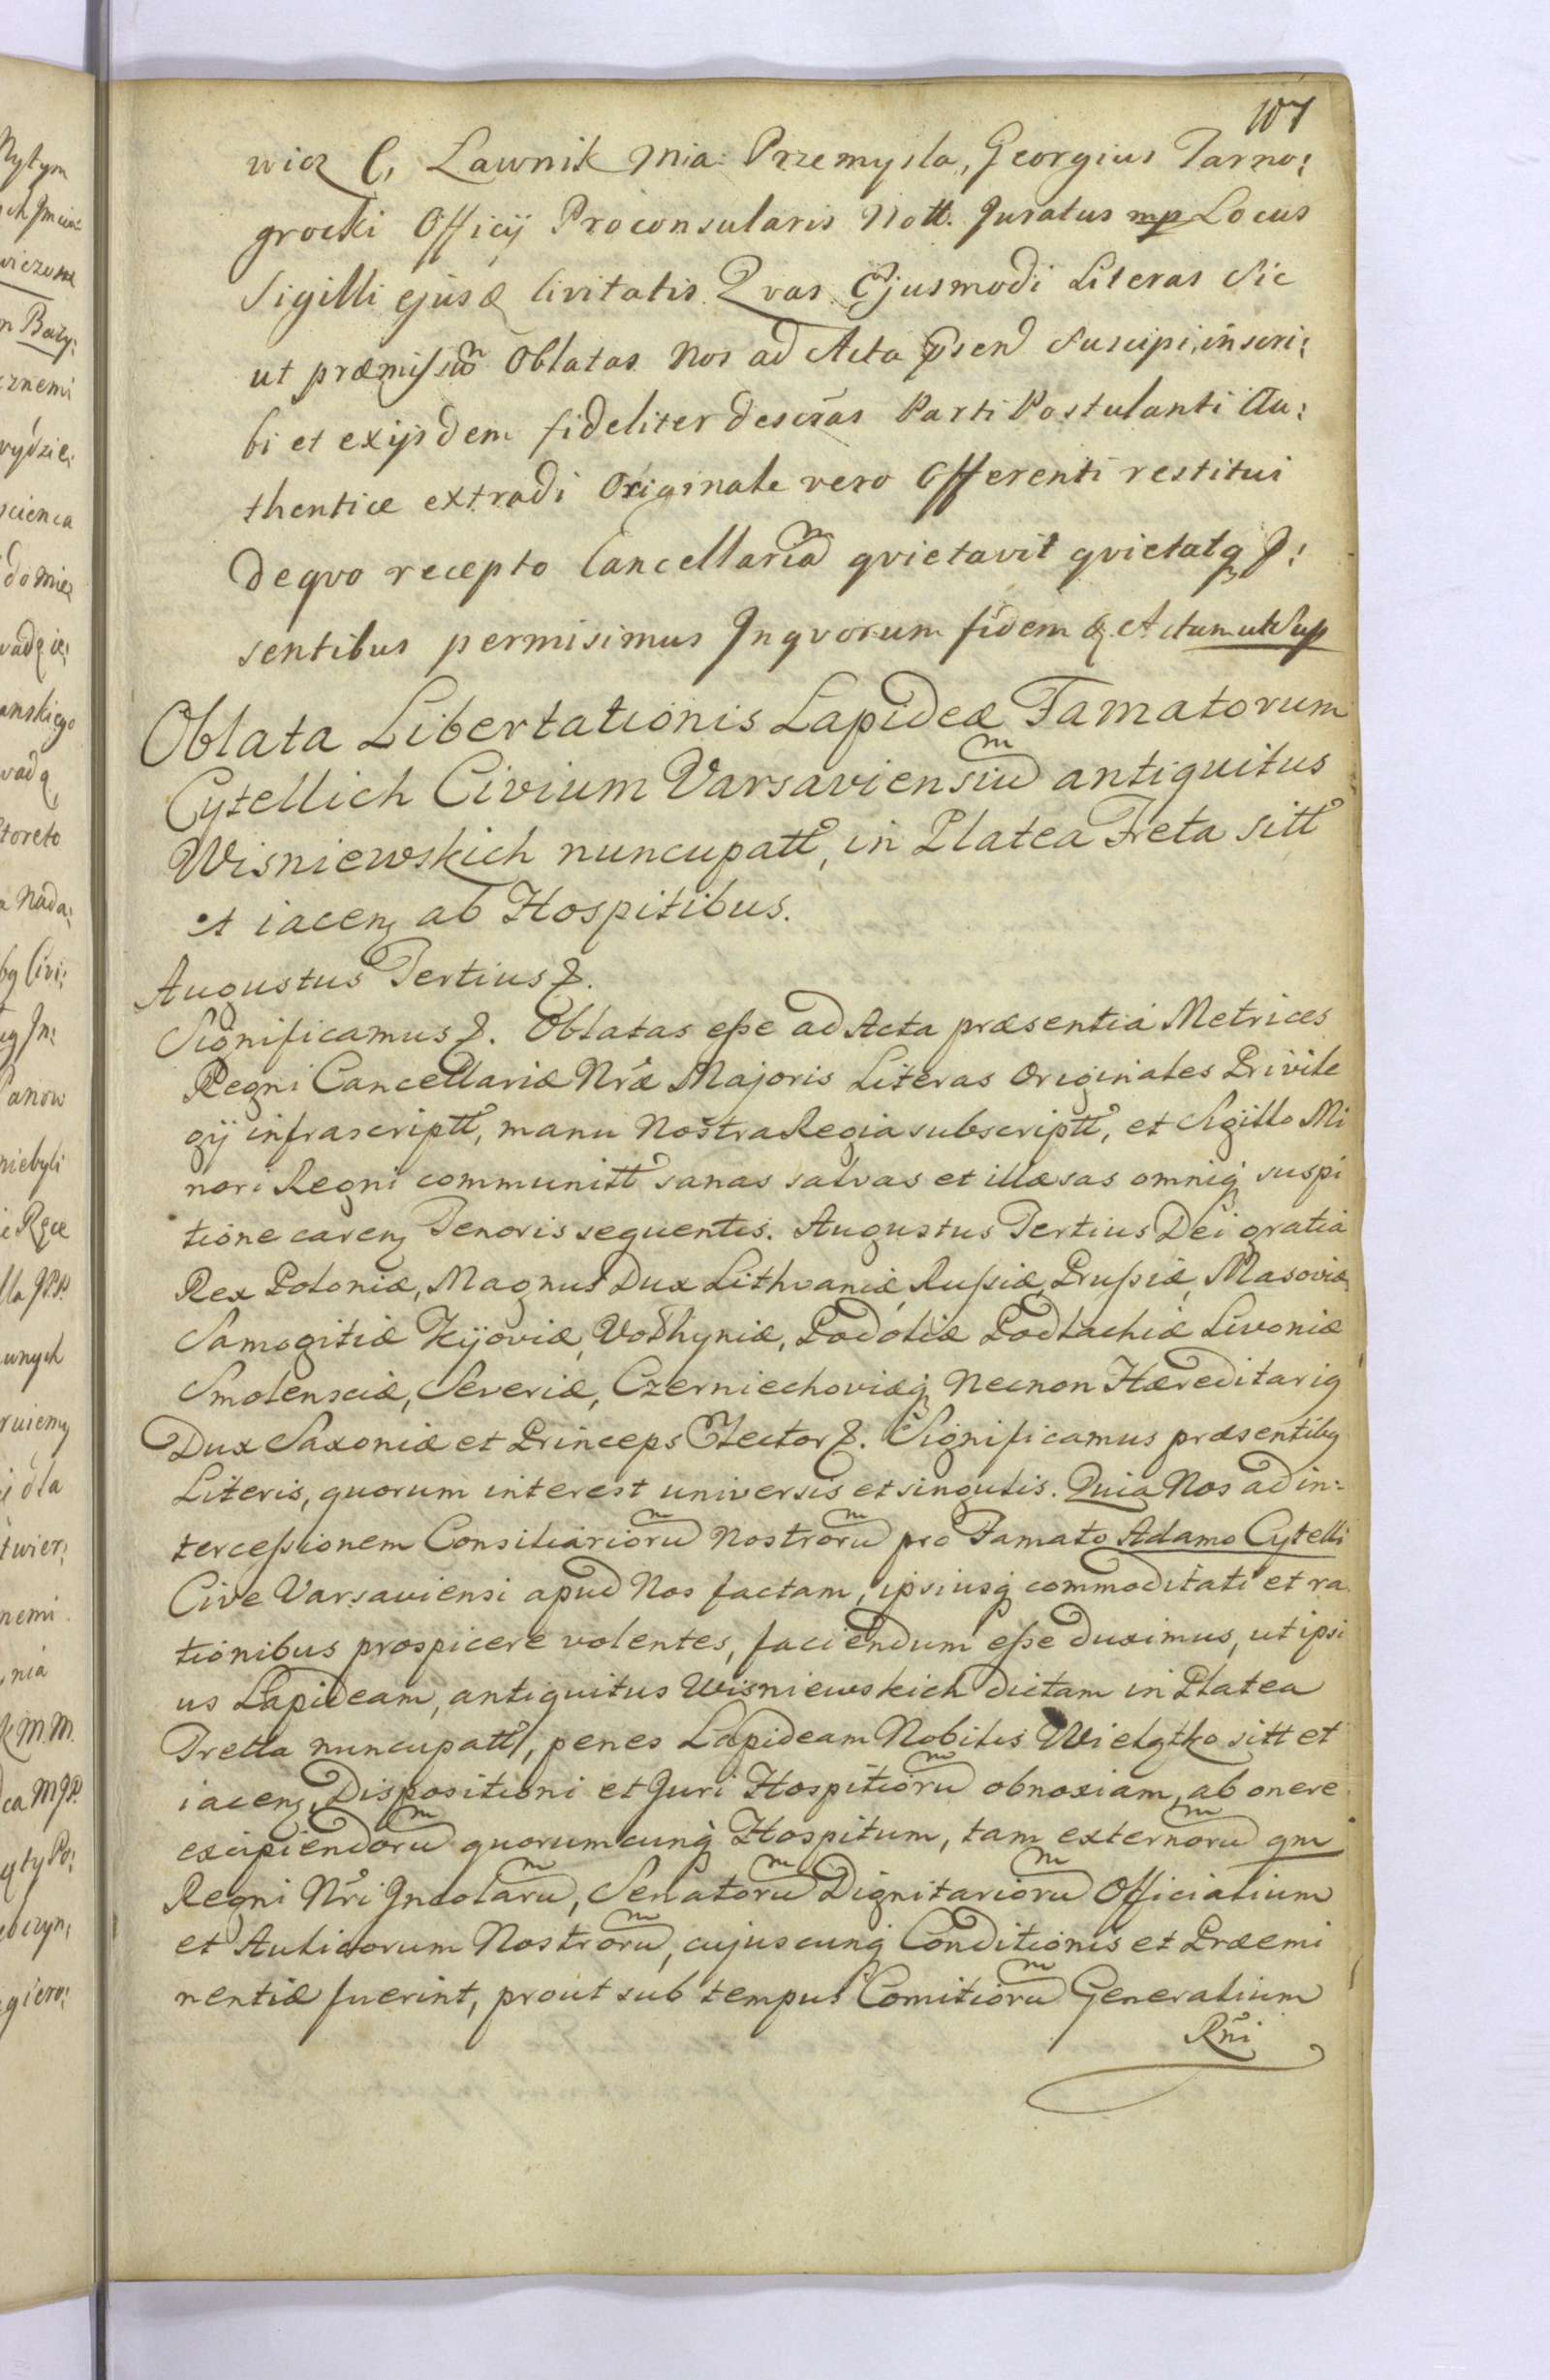 107
wicz C, Ławnik Mia: Przemysla, Georgius Tarno:
grocki Officÿ Proconsularis Nott. Juratus mp Locus
Sigilli ejusd Civitatis. Qvas Ejusmodi Literas Sic
ut præmissum Oblatas Nos ad Acta psen Suscipi, inscri:
bi et exijsdem fideliter descrãs Parti Postulanti Au:
thentice extradi Originale vero Offerenti restitui
De qvo recepto Cancellariam qvietavit qvietatq P:
sentibus permisimus Inqvorum fidem &. Actum ut Sup
Oblata Libertationis Lapideæ Famatorum
Cytellich Civium Varsaviensium antiquitus
Wisniewskich nuncupatt, in Platea Freta sitt
et iacen ab Hospitibus.
Augustus Tertius &.
Significamus &. Oblatas esse ad Acta præsentia Metrices
Regni Cancellariæ Nræ Majoris Literas Originales Privile
gÿ infrascriptt, manu Nostra Regia subscriptt, et Sigillo Mi
nori Regni communitt sanas salvas et illæsas omniq suspi
tione caren Tenoris sequentis. Augustus Tertius Dei gratia
Rex Poloniæ, Magnus Dux Lithvaniæ, Russiæ, Prussiæ, Masoviæ
Samogitiæ Kÿoviæ, Volhyniæ, Podoliæ Podlachiæ Livoniæ
Smolensciæ, Severiæ, Czerniechoviæq Necnon Hæreditarig
Dux Saxoniæ et Princeps Elector &. Significamus præsentibg
Literis, quorum interest universis et singulis. Quia Nos ad in:
tercessionem Consiliariorum Nostrorum pro Famato Adamo Cytelli
Cive Varsaviensi apud Nos factam, ipsiusq commoditati et ra
tionibus prospicere volentes, faciendum esse duximus, ut ipsi
us Lapideam, antiquitus Wisniewskich dictam in Platea
Tretta nuncupatt, penes Lapideam Nobilis Wielątko sitt et
iacen, Dispositioni et Juri Hospitiorum obnoxiam, ab onere
excipiendorum quorumcunq Hospitum, tam externorum qm
Regni Nri Incolarum, Senatorum Dignitariorum Officialium
et Aulicorum Nostrorum, cujuscunq Conditionis et Præemi
nentiæ fuerint, prout sub tempus Comitiorum Generalium
Rni